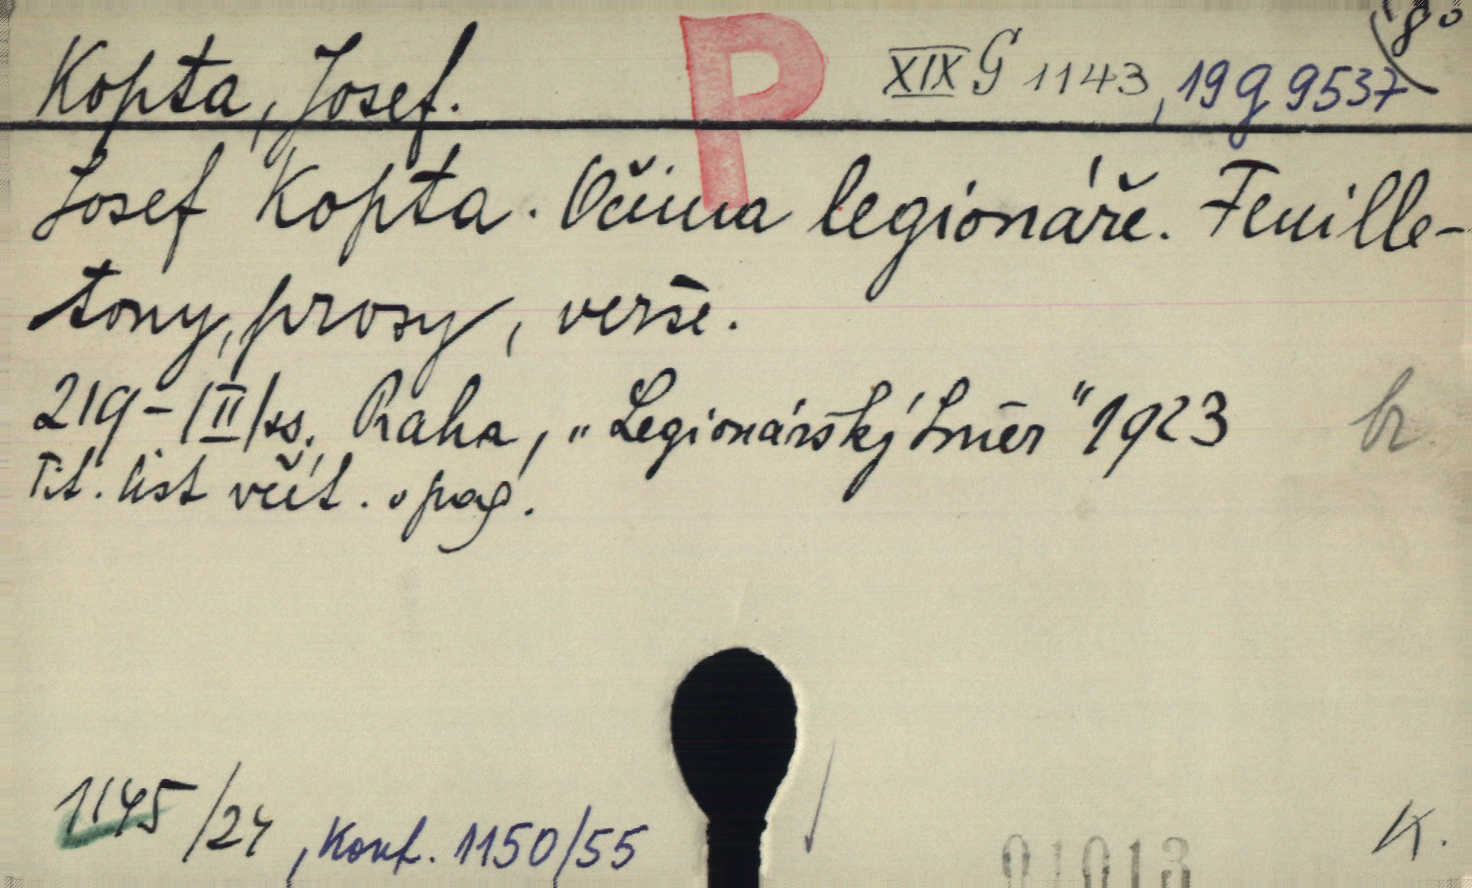 P
8°
Kopta, Josef.
XIX G 1143, 19 g 9537
Josef Kopta. Očima legionáře. Feuille-
tony, prosy, verše.
219-|II|ss. Praha, „Legionářský Směr" 1923
br.
Tit. list včít. v pag.
1145/24, Konf. 1150/55
K.
01013